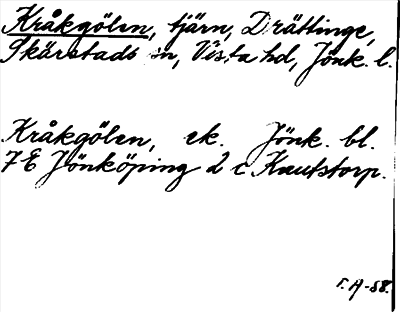 Kråkgölen, tjärn, Drättinge,
Skärstads sn, Vista hd, Jönk. l.
Kråkgölen, ek. Jönk. bl.
7E Jönköping 2 c Kaxtorp.
r. A-58.